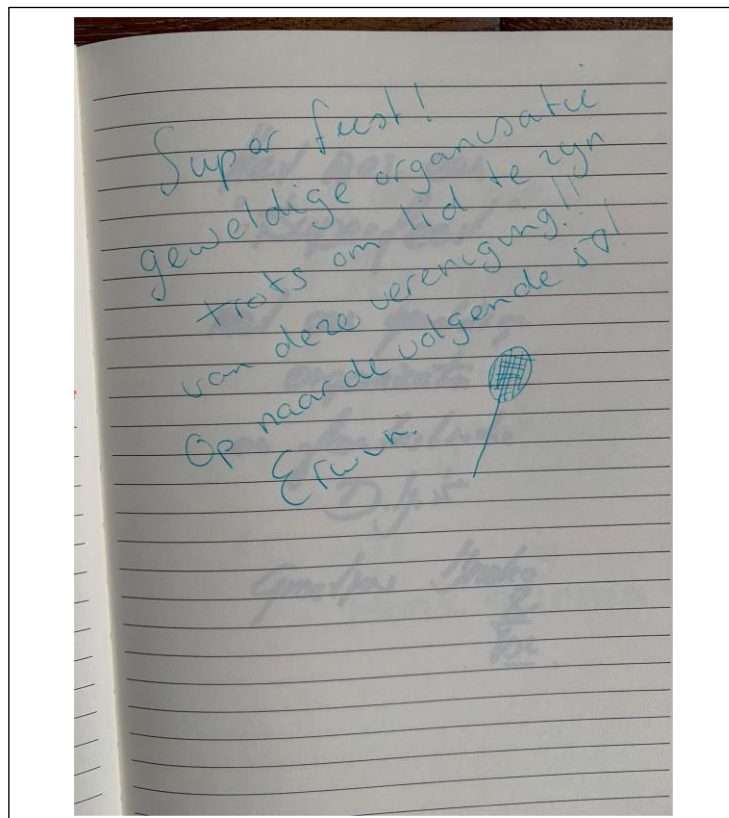 Super feest!
geweldige organisatie
trots om lid te zijn
van deze vereniging!!
Op naar de volgende 50!
Erwin.